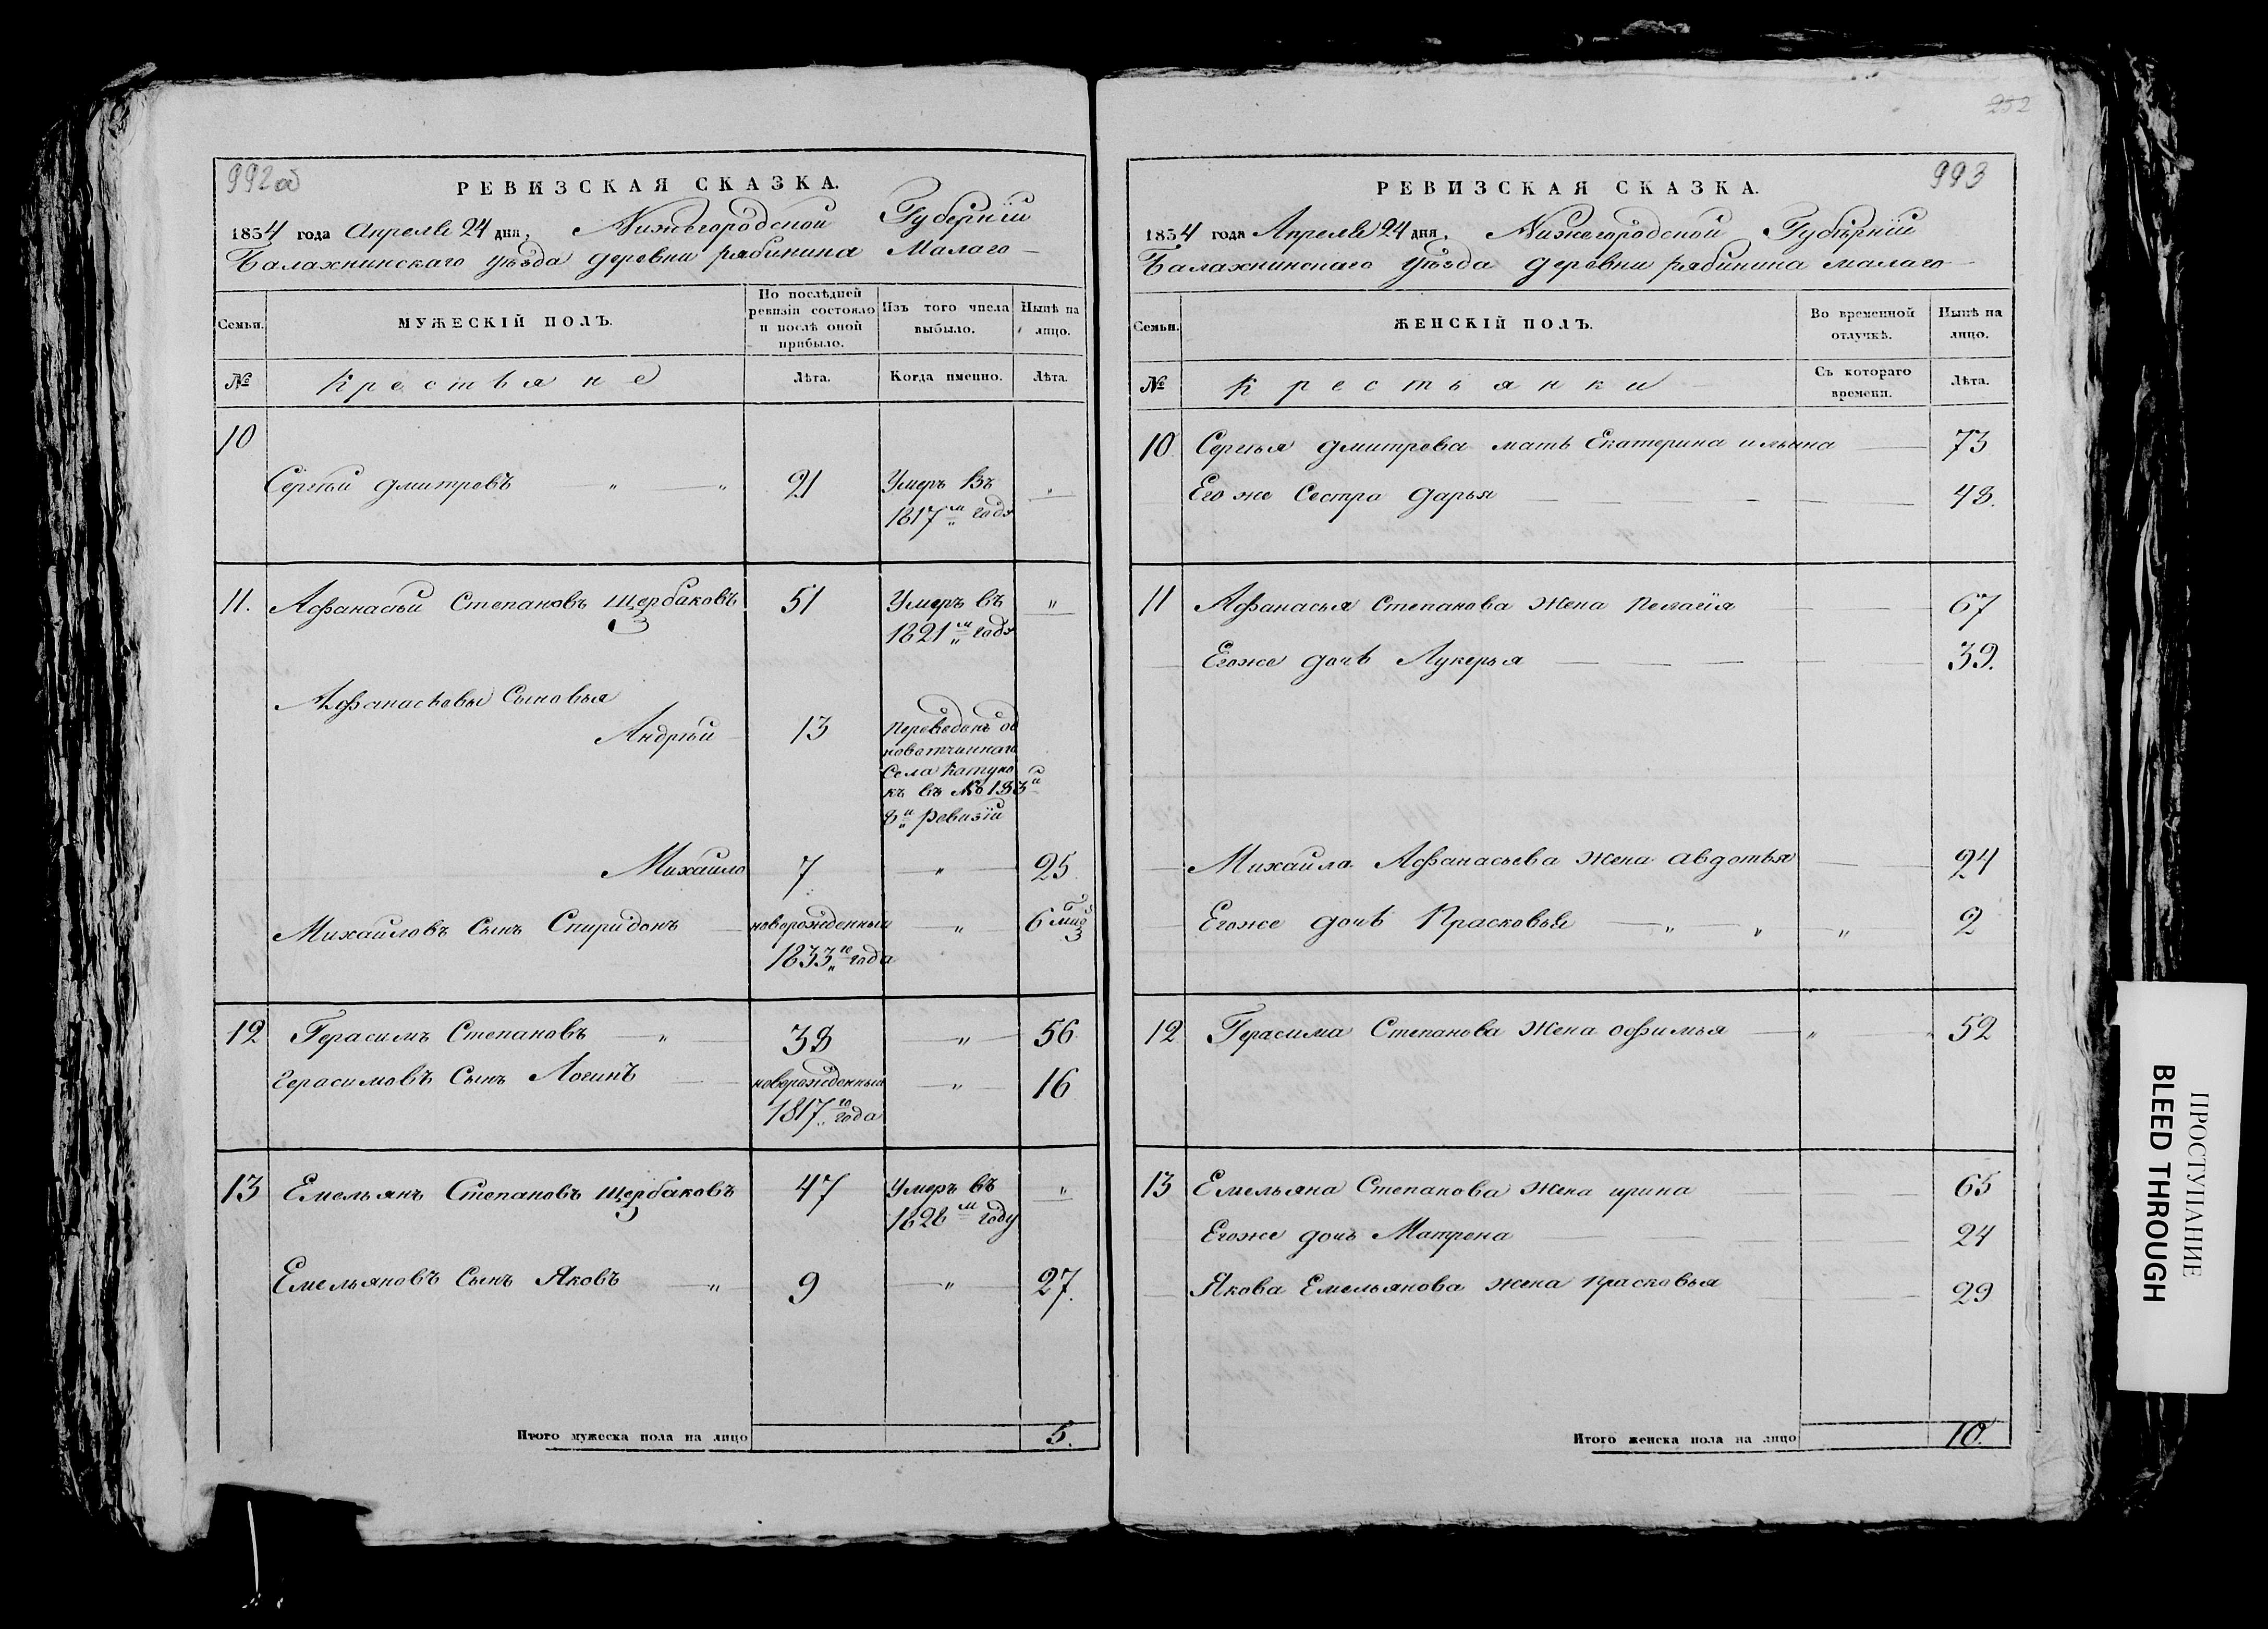 992об
РЕВИЗСКАЯ СКАЗКА.
1834 года Апреля 24 дня, Нижегородской Губернїи
Балахнинскаго уѣзда деревни рябинина Малаго
Семьи.
МУЖЕСКІЙ ПОЛЪ.
По послѣдней ревизіи состояло и послѣ оной прибыло.
Изъ того числа выбыло.
Нынѣ на лицо.
№
Крестьяне
Лѣта.
Когда именно.
Лѣта.
10
Сергѣй дмитревъ " " 21 Умеръ Въ "
1817м году
11. Афанасѣй Степановъ щербаковъ 51 Умеръ въ "
1821м году
Афанасьевы Сыновья
Андрѣй 13 переведенъ
Села Катуно
къ въ № 183й
8й ревизїи
Михаило 7 " 25
Михаиловъ Сынъ Спиридонъ новорожденный " 6
1833го года
12 Герасимъ Степановъ " 38 " 56
Герасимовъ Сынъ Логинъ новорожденный " 16
1817го года
13 Емельянъ Степановъ щербаковъ 47 Умеръ въ "
1828м году
Емельяновъ Сынъ Яковъ " 9 " 27.
Итого мужеска пола на лицо 5.
252
993
РЕВИЗСКАЯ СКАЗКА.
1834 года Апреля 24 дня. Нижегородской Губѣрнїи
Балахнинскаго Уѣзда деревни рябинина малаго
Семьи.
ЖЕНСКІЙ ПОЛЪ.
Во временной отлучкѣ.
Нынѣ на лицо.
№
Крестьянки
Съ котораго времени.
Лѣта.
10 Сергѣя дмитрева мать Екатерина ильина 73
Его же Сестра дарья 48.
11 Афанасья Степанова жена пелагїя 67
Егоже дочь Лукерья 39.
Михаила Афанасьева жена авдотья 24
Егоже дочь Прасковья " " " 2
12 Герасима Степанова жена офимья " " 52
13 Емельяна Степанова жена ирина 65
Егоже дочь Матрена 24
Якова Емельянова жена прасковья 29
Итого женска пола на лицо 10.
ПРОСТУПАНИЕ
BLEED THROUGH